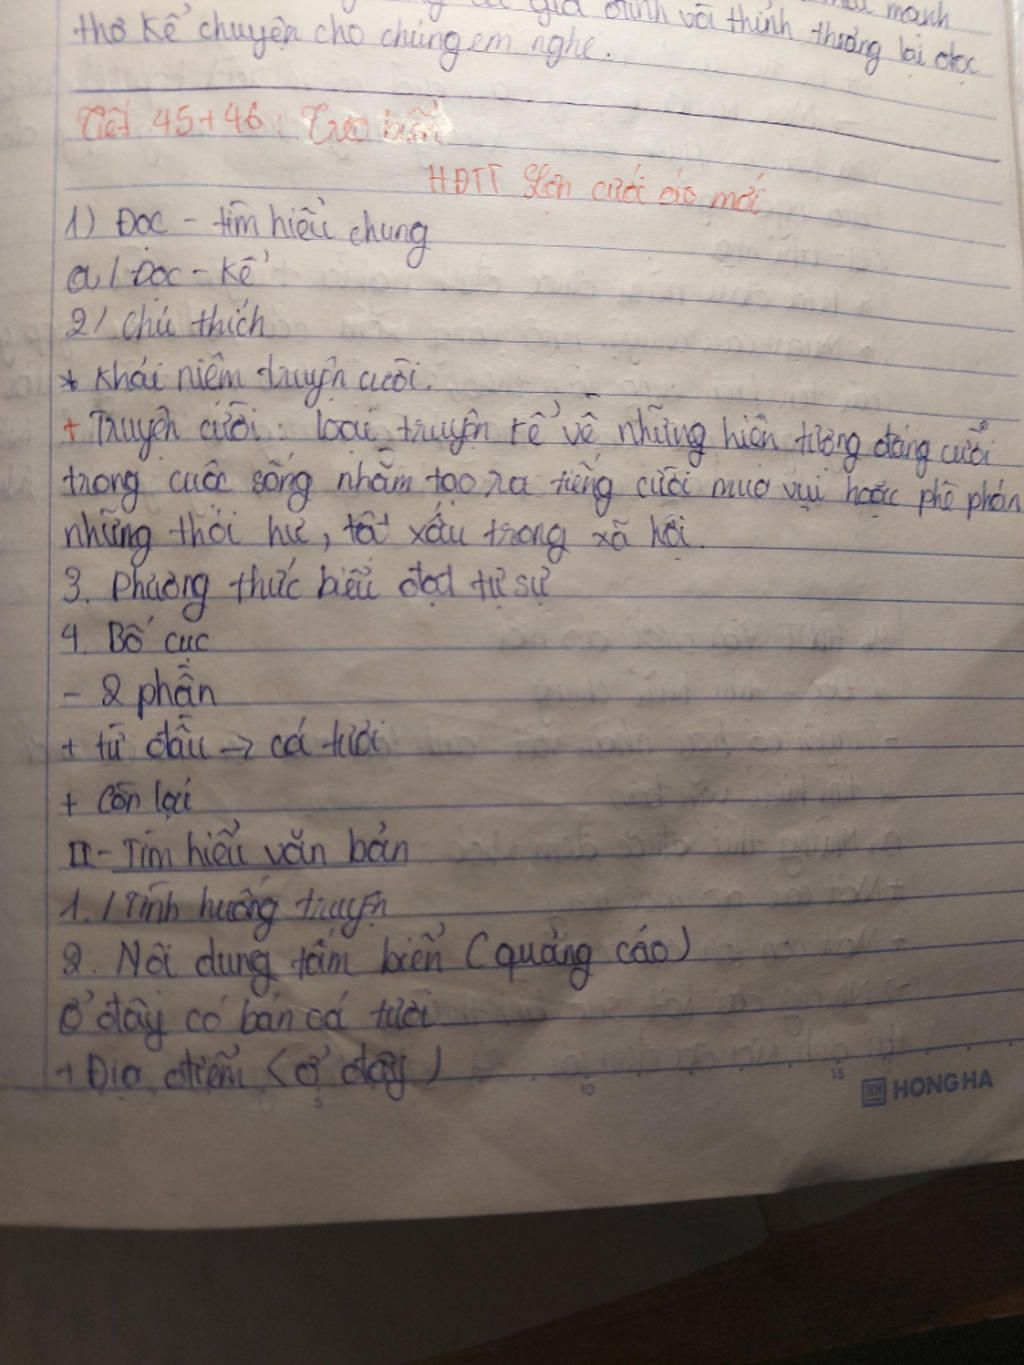 gia đình và thỉnh thoảng lại đọc
mạnh
thơ kể chuyện cho chúng em nghe.
Tiết 45+46: Treo biển
HĐTT Lợn cưới áo mới
1) Đọc - tìm hiểu chung
a/ Đọc - kể
2/ chú thích
* Khái niệm truyện cười.
+ Truyện cười: loại truyện kể về những hiện tượng đáng cười
trong cuộc sống nhằm tạo ra tiếng cười mua vui hoặc phê phán
những thói hư, tật xấu trong xã hội.
3. Phương thức biểu đạt tự sự
4. Bố cục
- 2 phần
+ từ đầu → cá tươi
+ Còn lại
II - Tìm hiểu văn bản
1. / Tình huống truyện
2. Nội dung tấm biển (quảng cáo)
Ở đây có bán cá tươi
+ Địa điểm (ở đây)
5 10 15
HONG HA